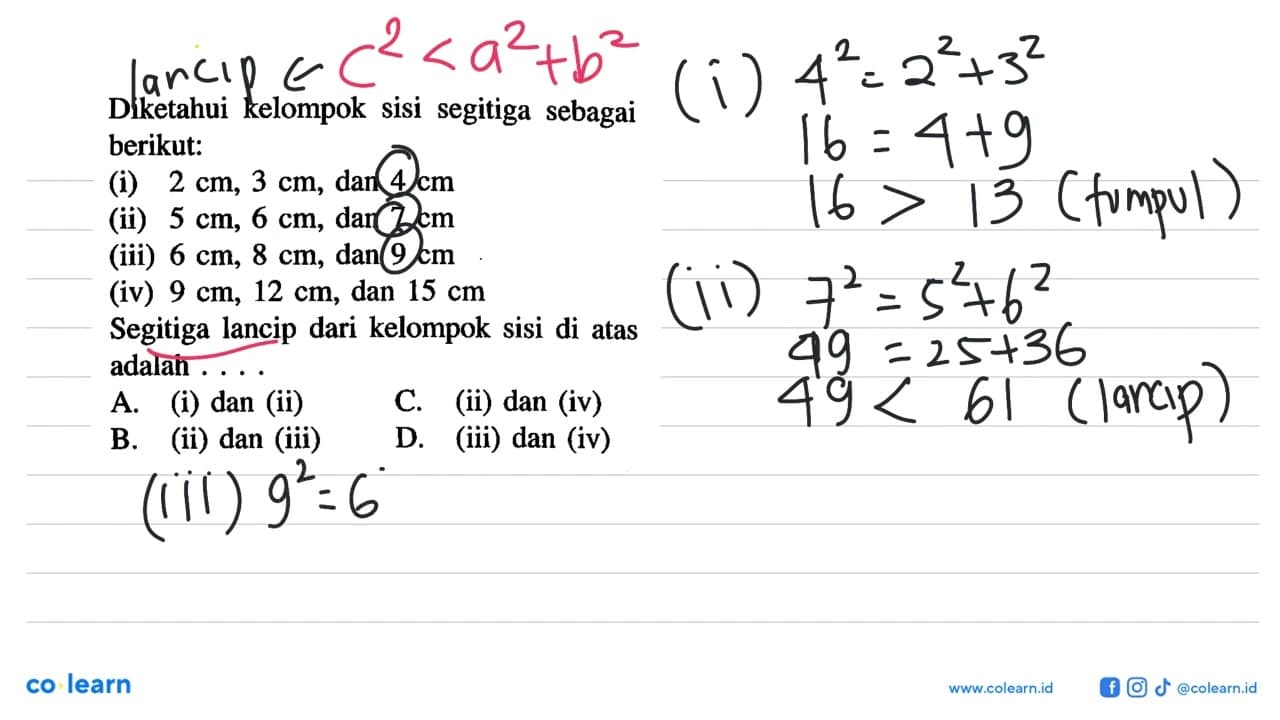 lancip ← c² < a² + b²
Diketahui kelompok sisi segitiga sebagai
berikut:
(i) 2 cm, 3 cm, dan 4 cm
(ii) 5 cm, 6 cm, dan 7 cm
(iii) 6 cm, 8 cm, dan 9 cm
(iv) 9 cm, 12 cm, dan 15 cm
Segitiga lancip dari kelompok sisi di atas
adalah . . . .
A. (i) dan (ii) C. (ii) dan (iv)
B. (ii) dan (iii) D. (iii) dan (iv)
(iii) 9² = 6
(i) 4² = 2² + 3²
16 = 4 + 9
16 > 13 (tumpul)
(ii) 7² = 5² + 6²
49 = 25 + 36
49 < 61 (lancip)
co learn
www.colearn.id
@colearn.id